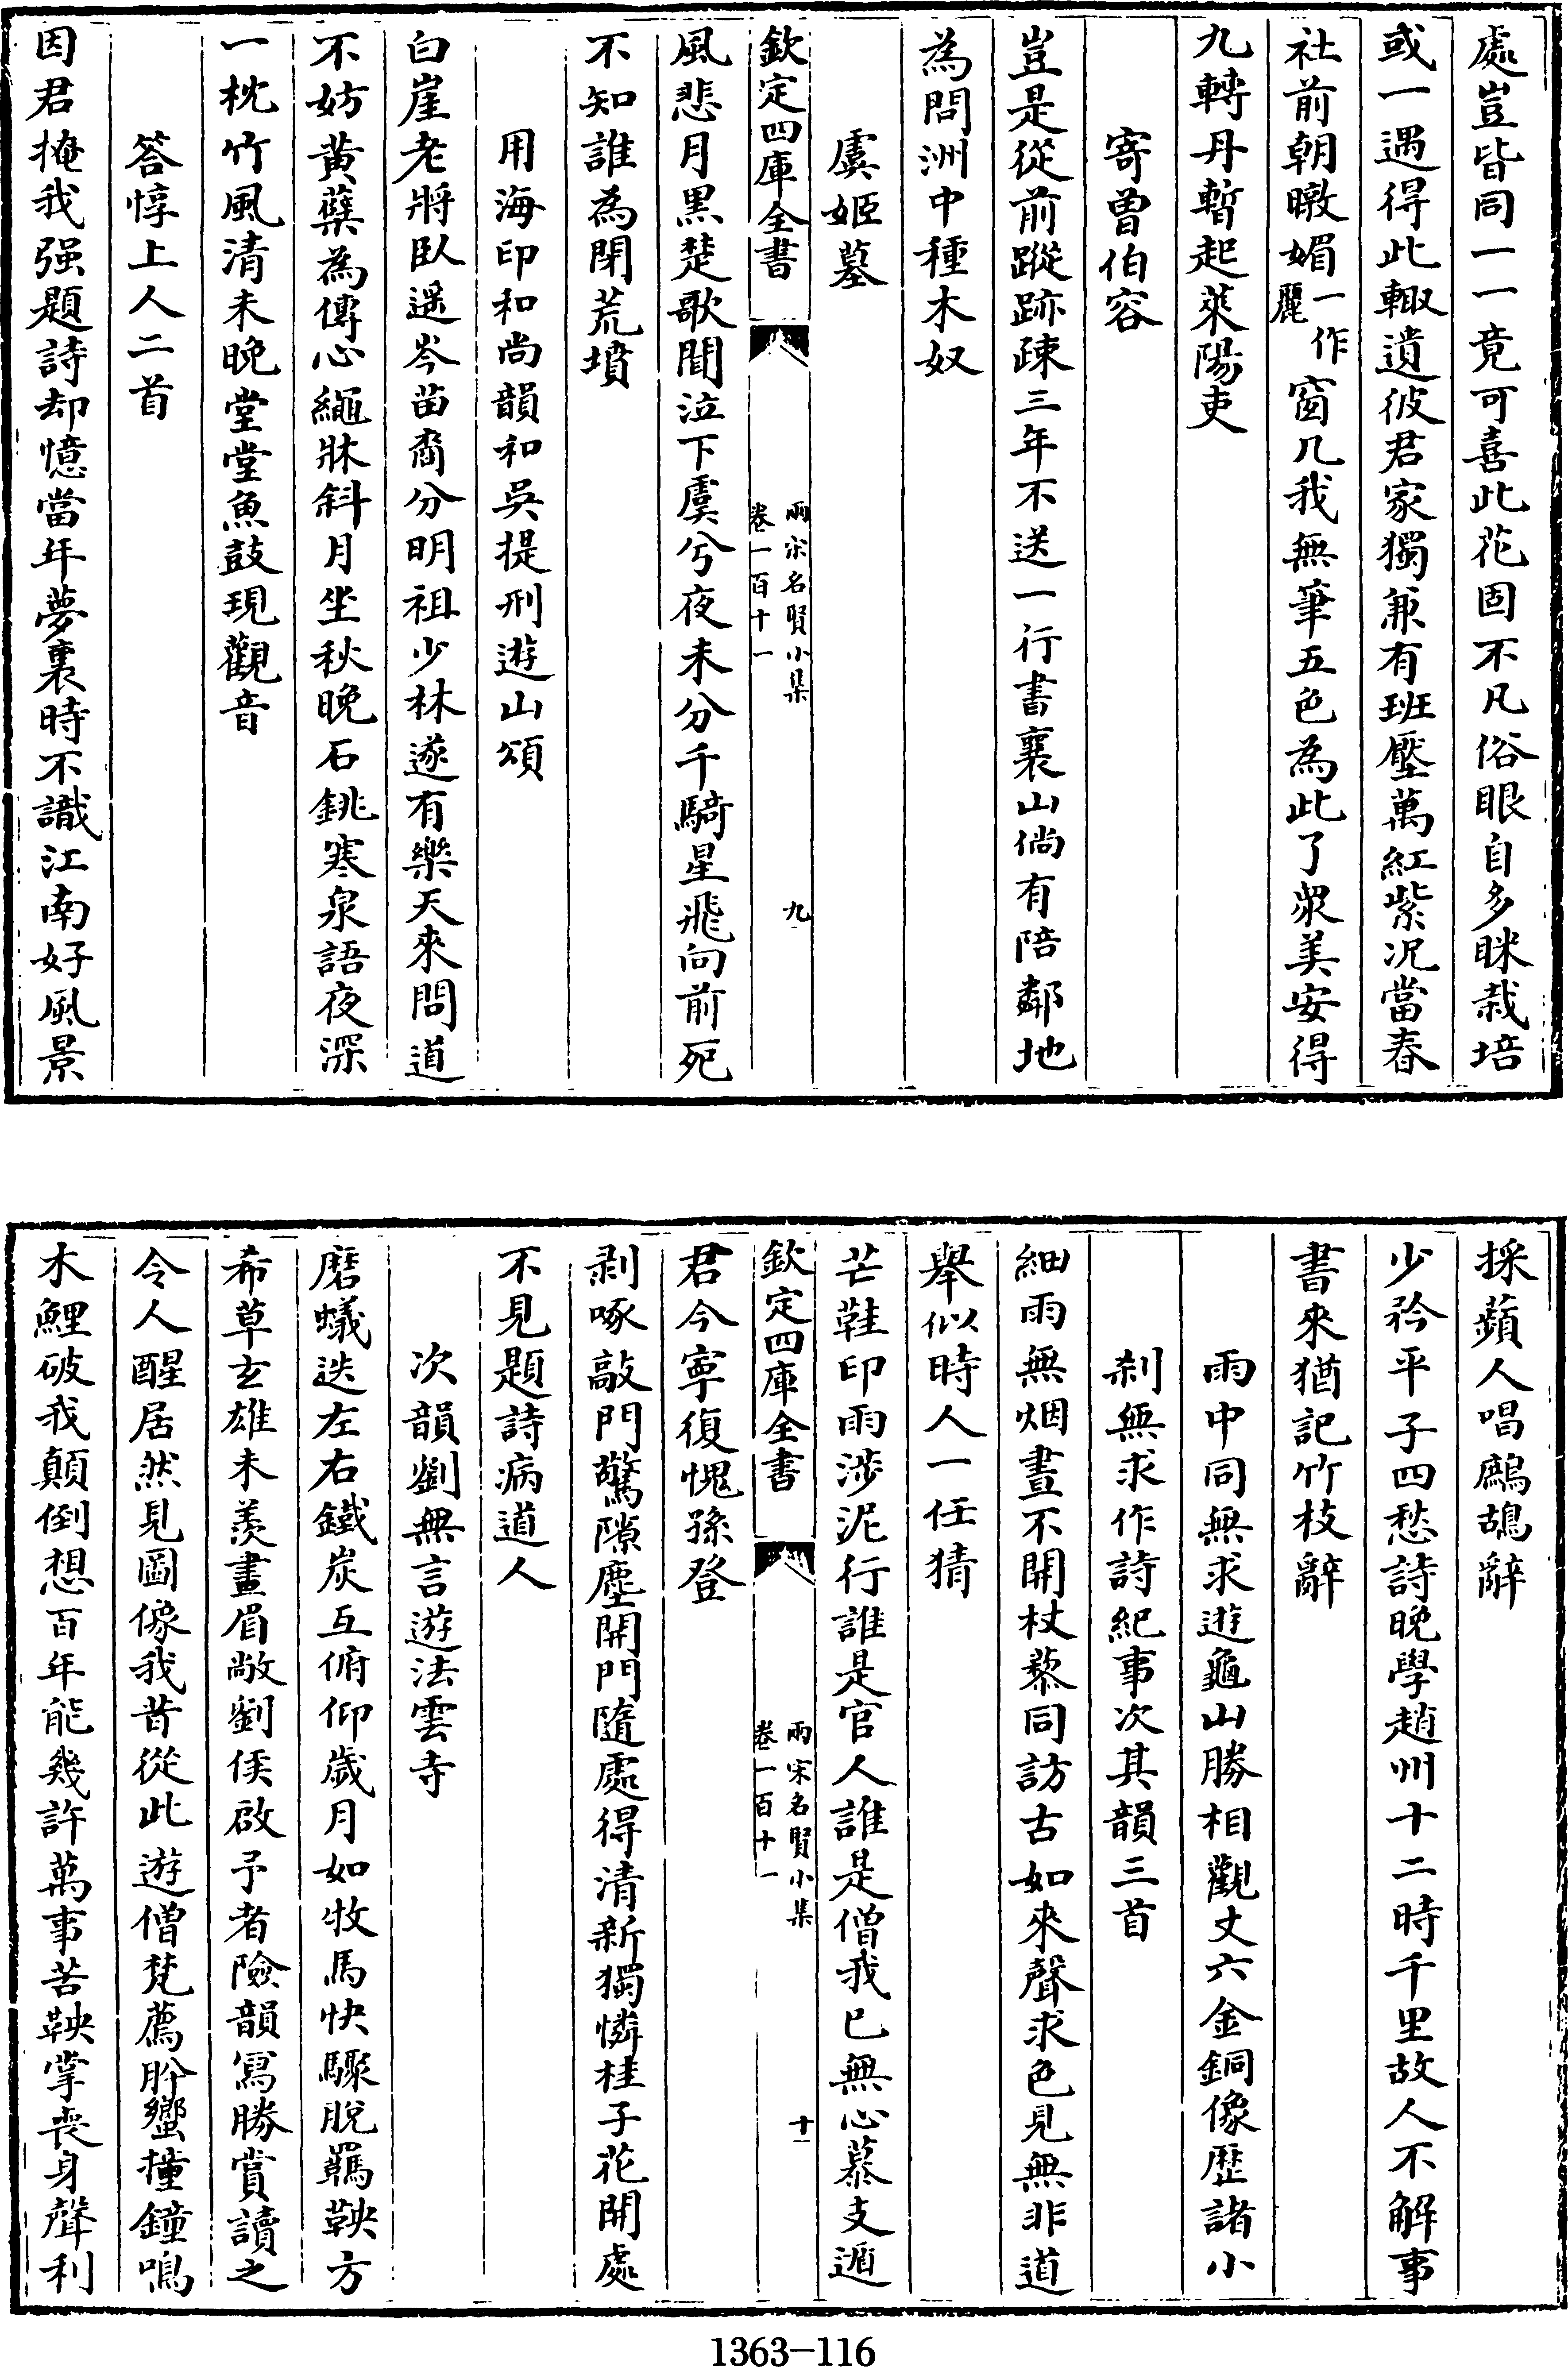 處豈皆同一一竟可喜此花固不凡俗眼自多眯栽培
或一遇得此輙遺彼君家獨兼有班壓萬紅紫況當春
社前朝暾媚一作麗窗几我無筆五色為此了衆美安得
九轉丹暫起萊陽吏
寄曾伯容
豈是從前蹤跡疎三年不送一行書襄山倘有陪鄰地
為問洲中種木奴
虞姬墓
欽定四庫全書
兩宋名賢小集
卷一百十一
九
風悲月黒楚歌聞泣下虞兮夜未分千騎星飛向前死
不知誰為閉荒墳
用海印和尚韻和吳提刑遊山頌
白崖老將臥遥岑苗裔分明祖少林遂有樂天來問道
不妨黄蘗為傳心繩牀斜月坐秋晚石銚寒泉語夜深
一枕竹風清未晚堂堂魚鼓現觀音
答惇上人二首
因君掩我强題詩却憶當年夢裏時不識江南好風景
採蘋人唱鷓鴣辭
少矜平子四愁詩晚學趙州十二時千里故人不解事
書來猶記竹枝辭
雨中同無求遊龜山勝相觀丈六金銅像歴諸小
刹無求作詩紀事次其韻三首
細雨無烟晝不開杖藜同訪古如來聲求色見無非道
舉似時人一任猜
芒鞋印雨涉泥行誰是官人誰是僧我已無心慕支遁
欽定四庫全書
兩宋名賢小集
卷一百十一
十
君今寧復愧孫登
剥啄敲門驚隙塵開門隨處得清新獨憐桂子花開處
不見題詩病道人
次韻劉無言遊法雲寺
磨蟻迭左右鐵炭互俯仰歲月如牧馬快驟脱羈鞅方
希草玄雄未羨畫眉敞劉侯啟予者險韻寫勝賞讀之
令人醒居然見圖像我昔從此遊僧梵薦肸蠁撞鐘鳴
木鯉破我顛倒想百年能幾許萬事苦鞅掌喪身聲利
1363-116